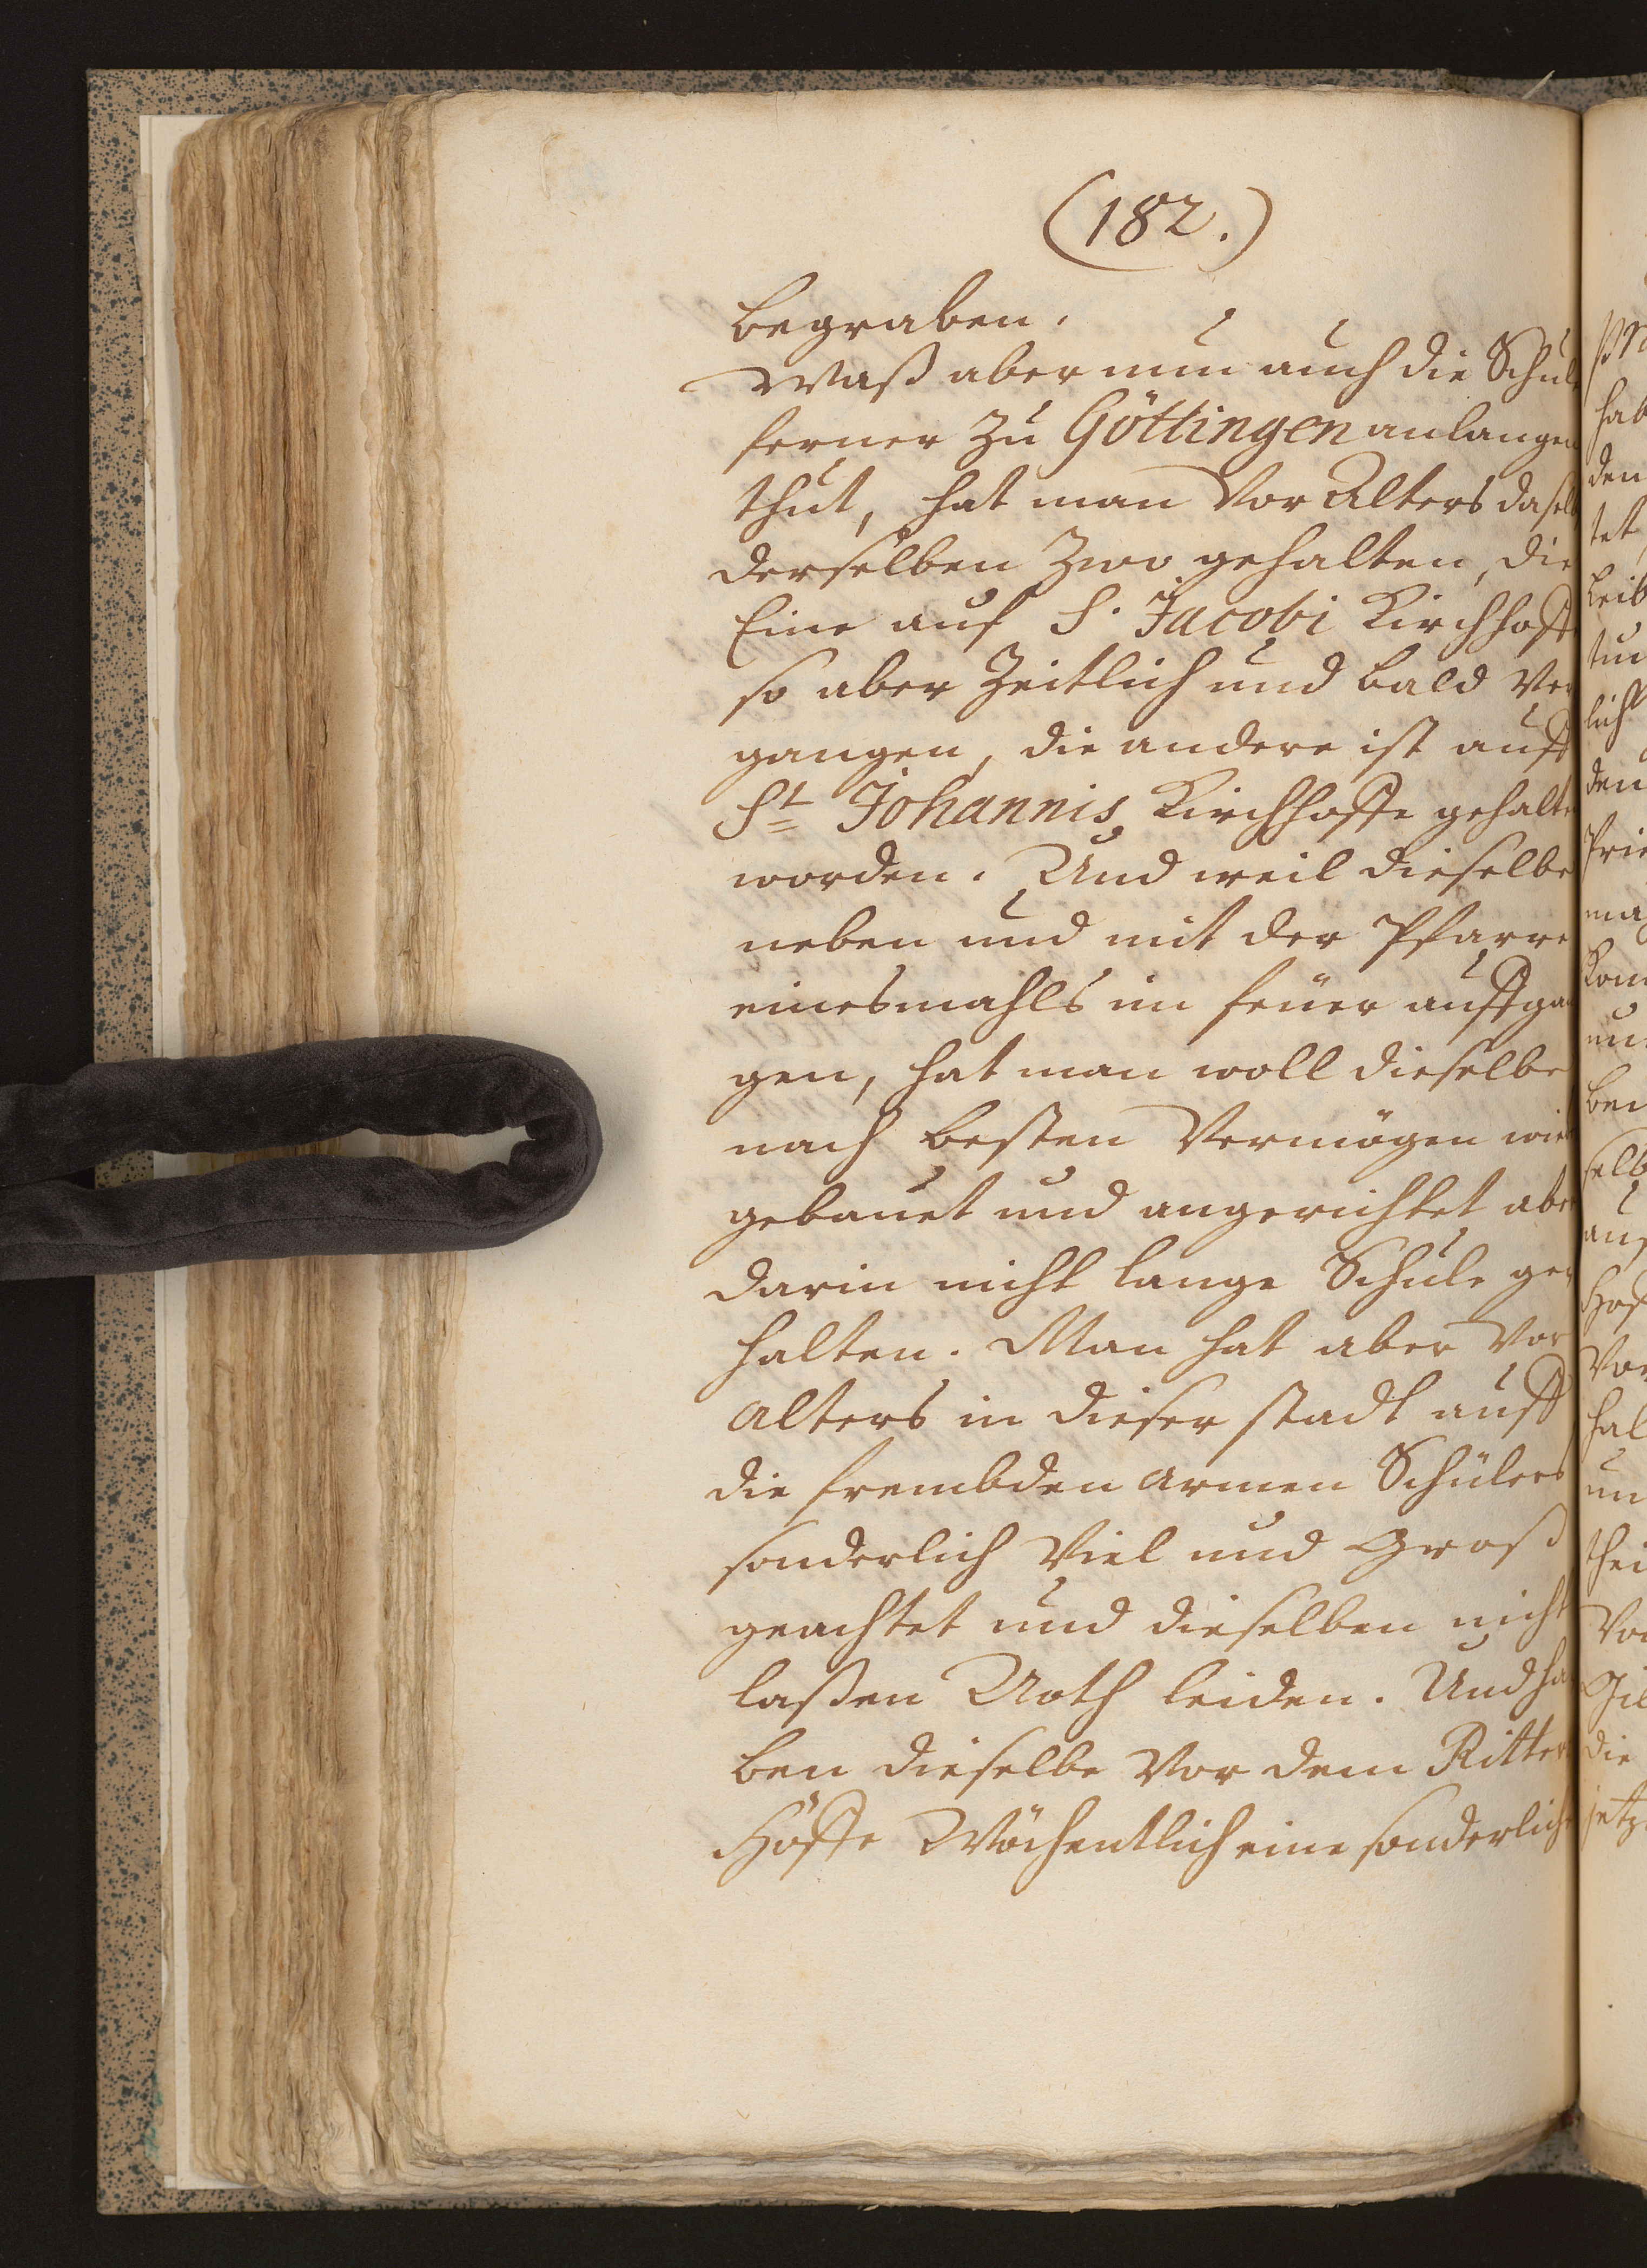 (182.)
begraben.
Waß aber nun auch die Schul
ferner zu Göttingen anlangen
thut, hat man Vor Alters daselb
derselben zwo gehalten, die
Eine auf S. Jacobi Kirchhoff
so aber zeitlich und bald Ver
gangen, die andere ist auff
St Johannis Kirchhoffe gehalte
worden. Und weil dieselbe
neben und mit der Pfarre
einesmahls im feuer auffgan
gen, hat man woll dieselbe
nach besten Vermögen wied
gebauet und angerichtet aber
darin nicht lange Schule ge
halten. Man hat aber Vor
Alters in dieser stadt auff
die frembden armen Schülers
sonderlich Viel und Groß
geachtet und dieselben nicht
laßen Noth leiden. Und ha
ben dieselbe Vor dem Ritter
Höffe Wöchentlich eine sonderliche
hab
den
tet
leib
lich
den
un
hal
die
jetz